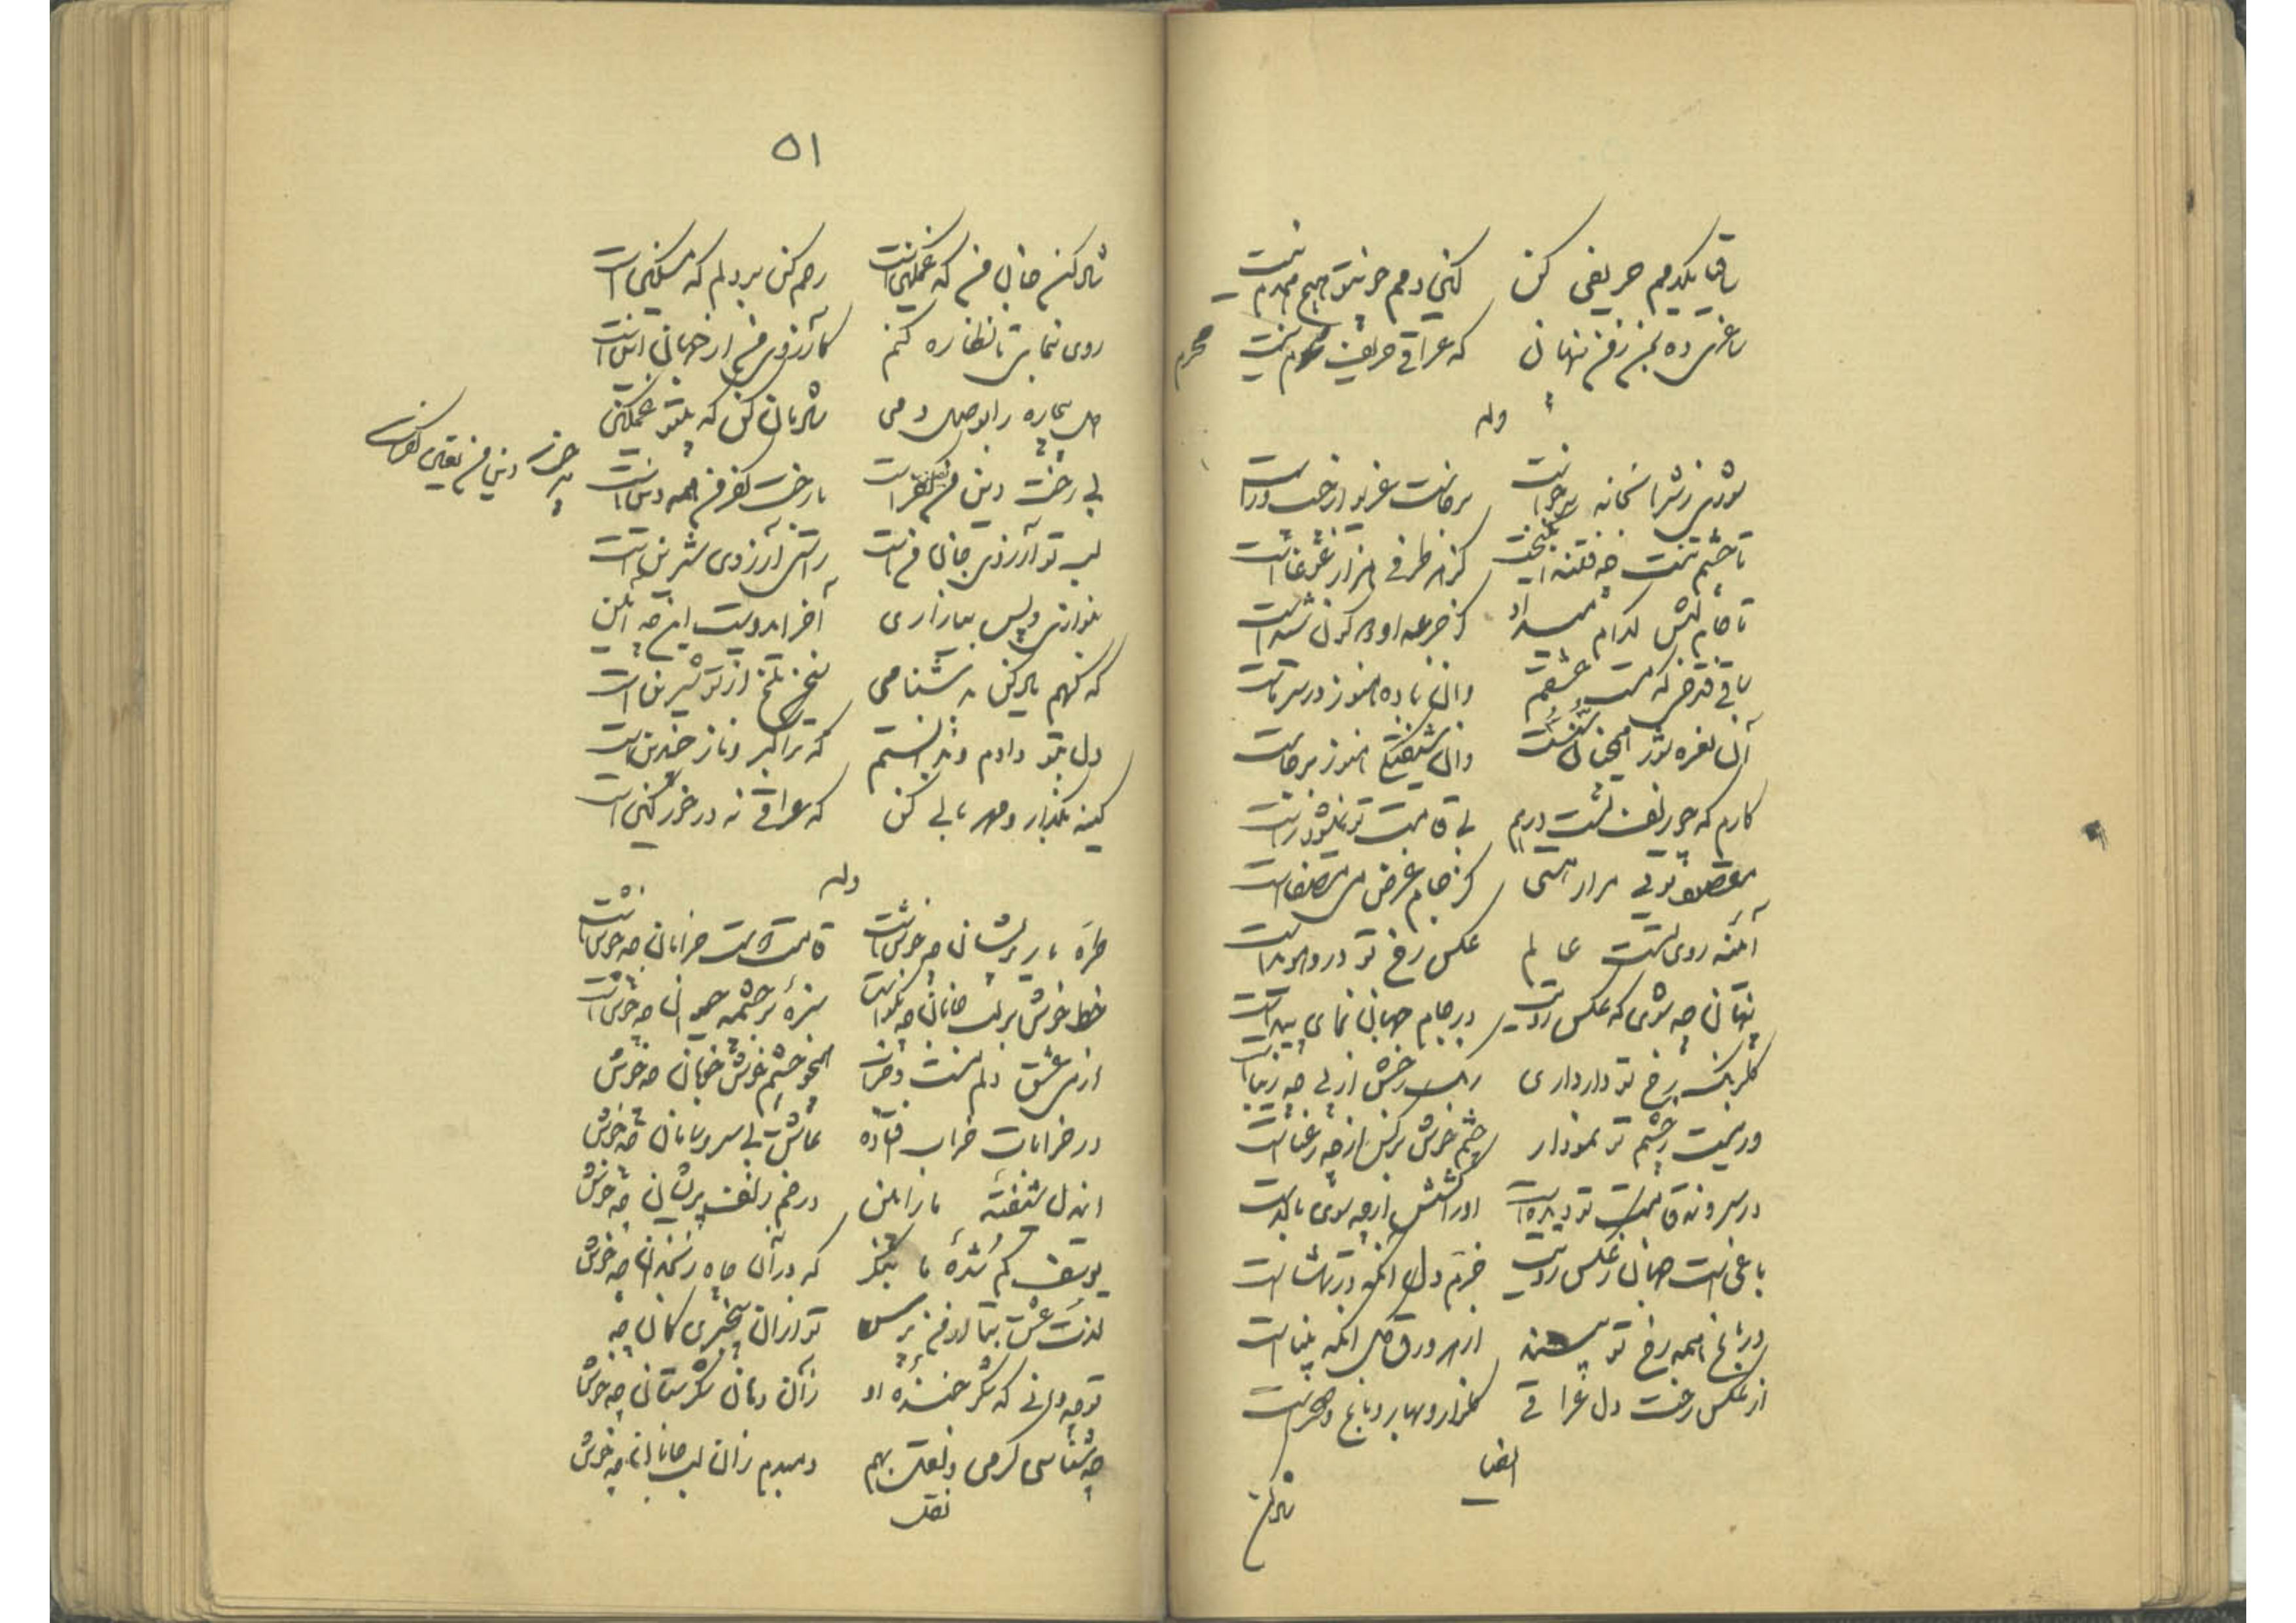 ساقیا یکدمم حریفی کن کین دمم جز تو هیچ همدم نیست
ساغری ده بمن ز من بنهان که عراقی حریف محرم نیست
محرم
وله
شوری ز شرابخانه برخاست برخاست غریو از چپ و راست
تا چشم بتم چه فتنه انگیخت کز هر طرفی هزار غوغاست
تا جام لبش کدام می داد کز جرعه اش هر که هست شیداست
ساقی قدحی که مست عشقم وان باده هنوز در سر ماست
آن نعره شور همچنان هست وان شیفتگی هنوز برجاست
کارم که چو زلف تست درهم بی قامت تو نمیشود راست
مقصود تویی مرا ز هستی کز جام غرض می مصفاست
آئنه روی تست عالم عکس رخ تو درو هویداست
پنهان چه شوی که عکس رویت در جام جهان نمای پیداست
گل رنگ رخ تو دارد ار نی رنگ رخش از پی چه زیباست
ور نیست ز چشم تو نمودار چشم خوش نرگس از چه رعناست
در سرو نه قامت تو دیده است او را کشش از چه سوی بالاست
باغی است جهان ز عکس رویت خرم دل آنکه در تماشاست
در باغ همه رخ تو بیند از هر ورق گل آنکه بیناست
از عکس رخت دل عراقی گلزار و بهار و باغ و صحراست
ایضا
شاد کن
۵۱
شاد کن جان من که غمگین است رحم کن بر دلم که مسکین است
روی بنمای تا نظاره کنم کارزوی من از جهان این است
دل بیچاره را بوصل دمی شادمان کن که بیتو غمگین
بی رخت دین من کفر است با رخت کفر من همه دین است
لب تو آرزوی جان من است راستی آرزوی شیرین است
بنوازی و پس بیازاری آخر ایدوست این چه آئین
که گهم یاد کن بدشنامی سخن تلخ از تو شیرین است
دل بتو دادم و ندانستم که ترا کبر و ناز چندین است
کینه بگذار و مهربانی کن که عراقی نه درخور کین است
وله
طره یار پریشان چه خوش است قامت دوست خرامان چه خوش است
خط خوش بر لب جانان چه نکوست سبزه بر چشمه حیوان چه خوش است
از می عشق دلم مست و خراب همچو چشم خوش خوبان چه خوش
در خرابات خراب افتاده عاشق بی سر و سامان چه خوش
این دل شیفته ما را بین در خم زلف پریشان چه خوش
یوسف گم شدهٔ ما بنگر که در آن چاه زنخدان چه خوش
لذت عشق بتم از من پرس تو از آن بیخبری کان چه
تو چه دانی که شکر خندهٔ او زان دهان شکرستان چه خوش
چه شناسی که می و نقل بهم دمبدم زان لب جانان چه خوش
نقل